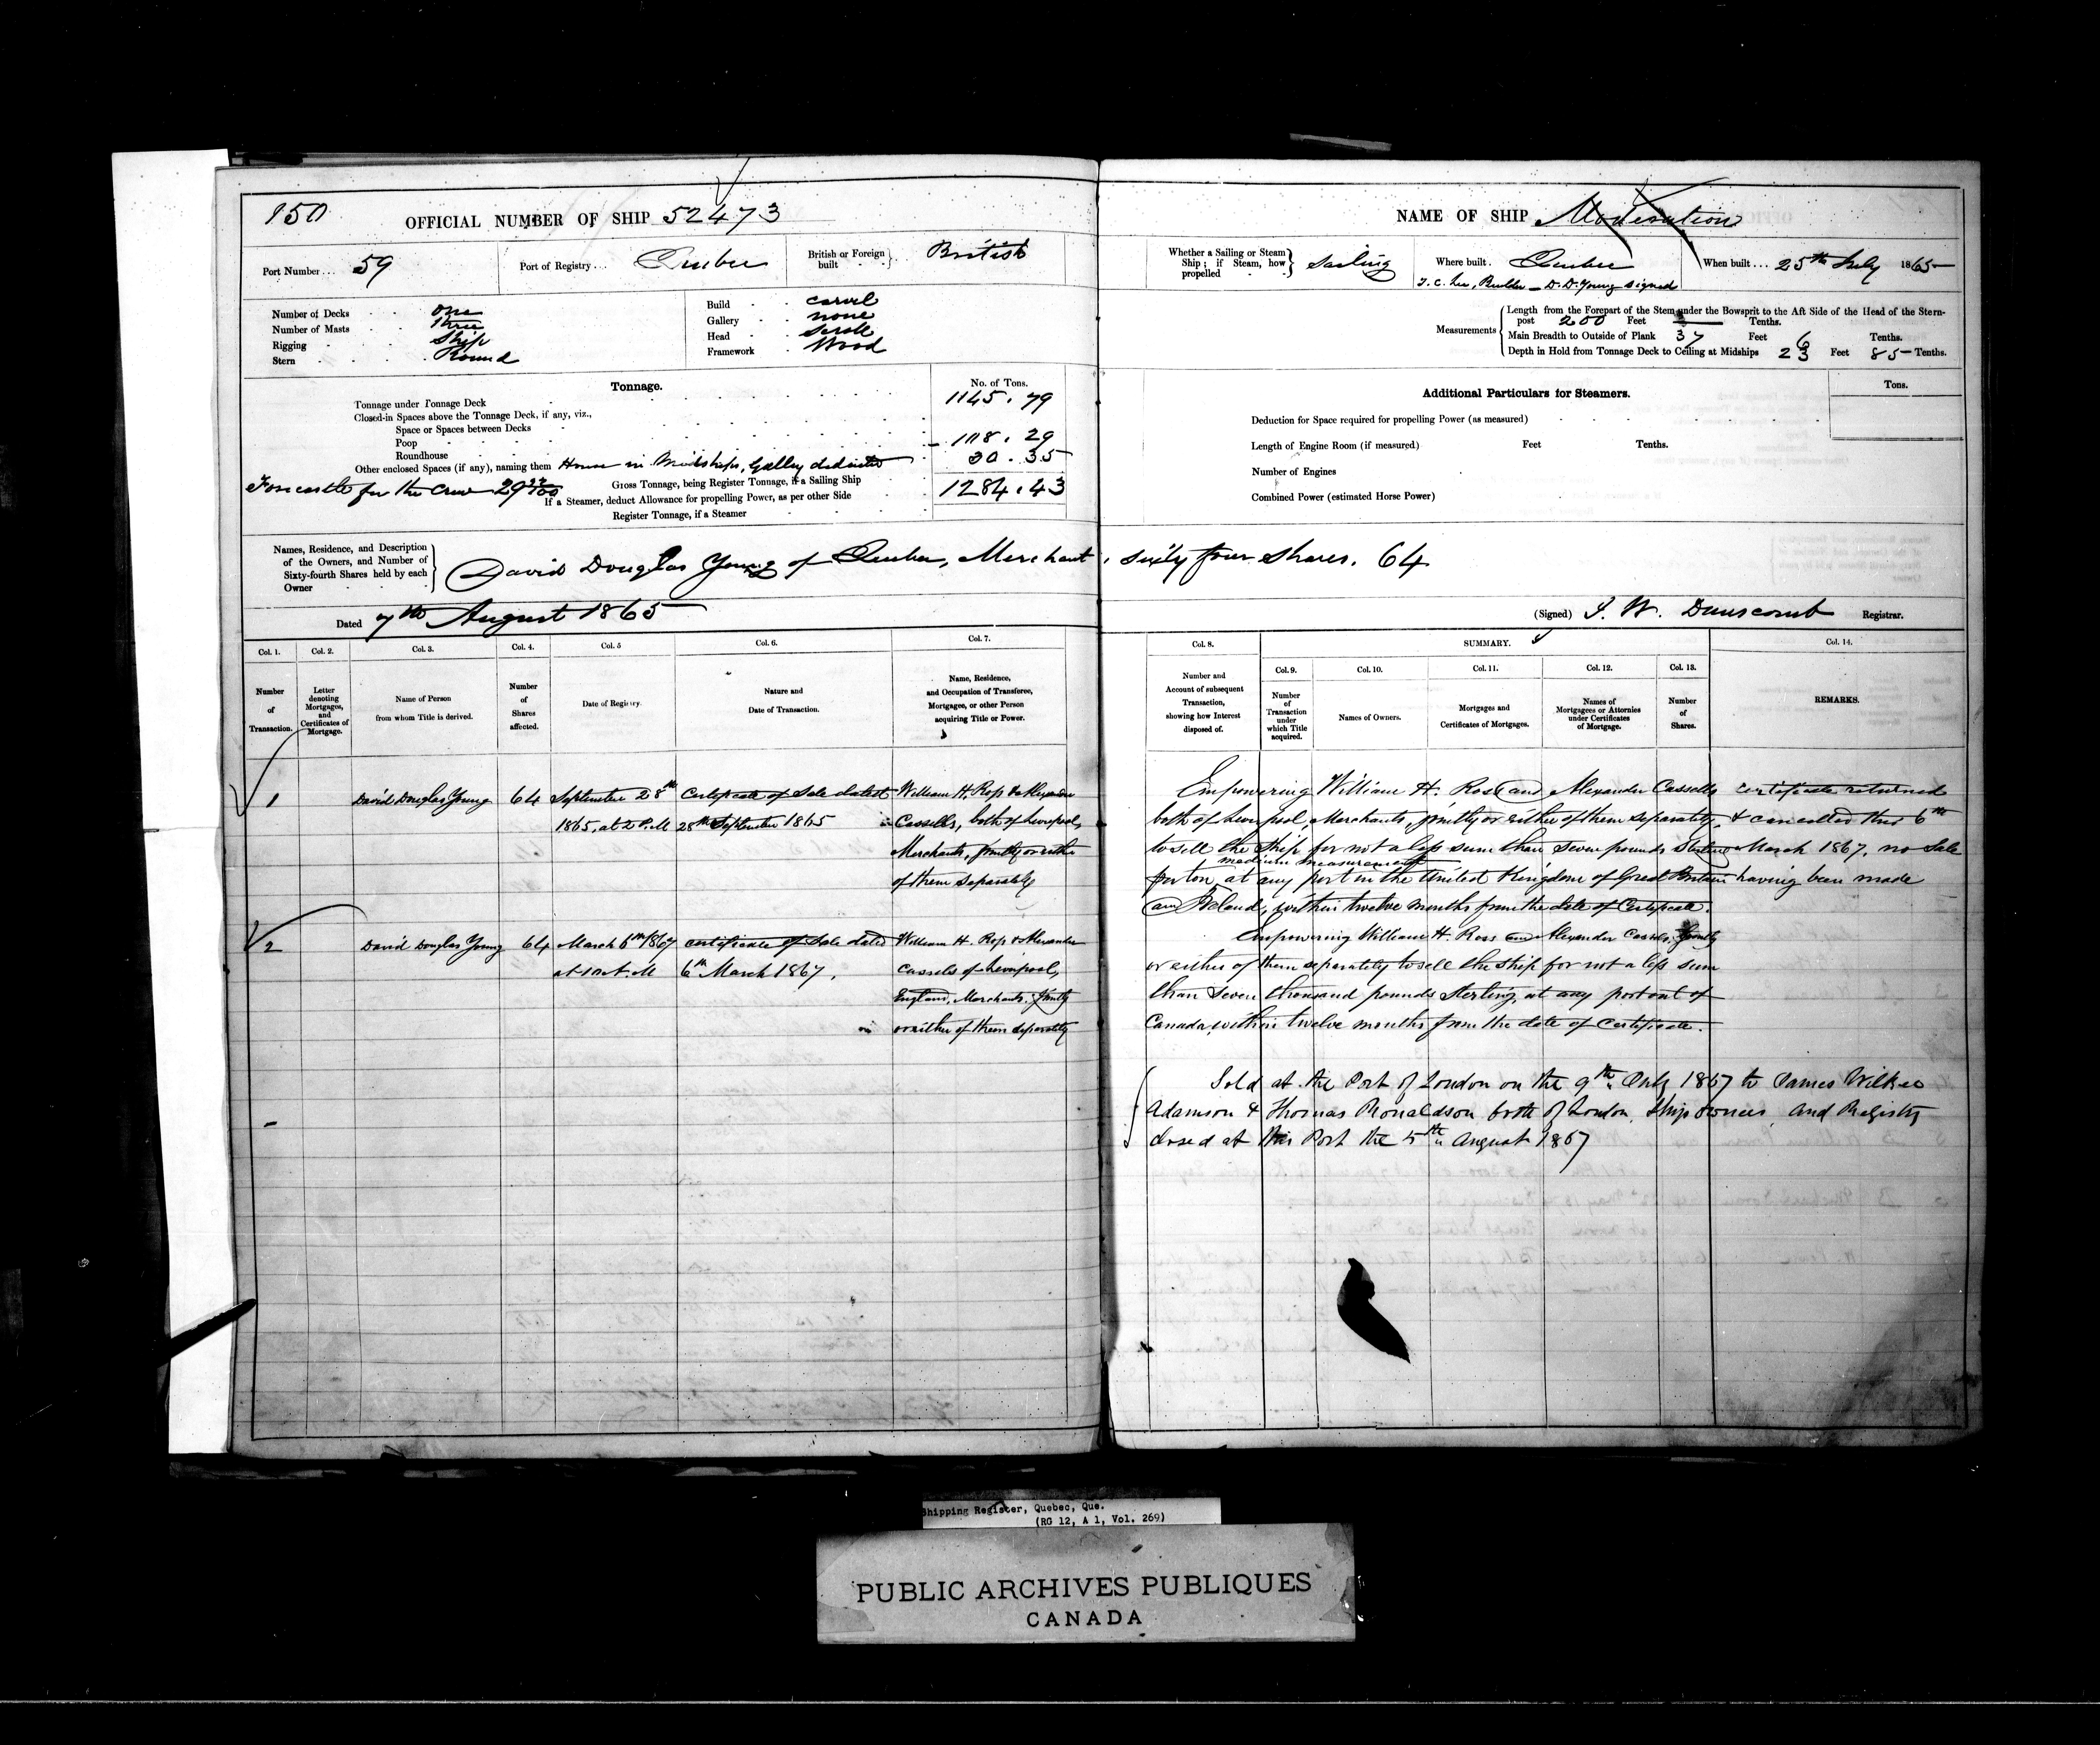 150
OFFICIAL NUMBER OF SHIP 52473
Port Number... 59
Port of Registry... Quebec
British or Foreign built British
Number of Decks One
Number of Masts Three
Rigging Ship
Stern Round
Build carvel
Gallery none
Head Scroll
Framework Wood
Tonnage.
No. of Tons.
Tonnage under Tonnage Deck 1145.79
Closed-in Spaces above the Tonnage Deck, if any, viz.,
Space or Spaces between Decks
Poop 108.29
Roundhouse
Other enclosed Spaces (if any), naming them House in Midships, Galley deducted 30.35
Forecastle for the Crew 29
Gross Tonnage, being Register Tonnage, if a Sailing Ship 1284.43
If a Steamer, deduct Allowance for propelling Power, as per other Side
Register Tonnage, if a Steamer
Names, Residence, and Description of the Owners, and Number of Sixty-fourth Shares held by each Owner
David Douglas Young of Quebec, Merchant, sixty four shares. 64
Dated 7th August 1865
Col. 1. Col. 2. Col. 3. Col. 4. Col. 5 Col. 6. Col. 7.
Number of Transaction.
Letter denoting Mortgages, and Certificates of Mortgage.
Name of Person from whom Title is derived.
Number of Shares affected.
Date of Registry.
Nature and Date of Transaction.
Name, Residence, and Occupation of Transferee, Mortgagee, or other Person acquiring Title or Power.
1 David Douglas Young 64 September 28th Certificate of Sale dated William H. Ross & Alexander
1865, at 2 P.M 28th September 1865 Cassells, both of Liverpool,
Merchants, jointly or either
of them separately
2 David Douglas Young 64 March 6th 1867 certificate of Sale dated William H. Ross & Alexander
at 10 A.M 6th March 1867. Cassels of Liverpool,
England, Merchants, jointly
or either of them separately
NAME OF SHIP Moderation
Whether a Sailing or Steam Ship; if Steam, how propelled Sailing
Where built. Quebec
T. C. Lee, Builder - D. D. Young signed
When built... 25th July 1865
Measurements
Length from the Forepart of the Stem under the Bowsprit to the Aft Side of the Head of the Stern-
post 200 Feet Tenths.
Main Breadth to Outside of Plank 37 Feet 6 Tenths.
Depth in Hold from Tonnage Deck to Ceiling at Midships 23 Feet 85 Tenths.
Additional Particulars for Steamers.
Tons.
Deduction for Space required for propelling Power (as measured)
Length of Engine Room (if measured) Feet Tenths.
Number of Engines
Combined Power (estimated Horse Power)
(Signed) J. W. Dunscomb Registrar.
Col. 8. SUMMARY. Col. 14.
Col. 9. Col. 10. Col. 11. Col. 12. Col. 13.
Number and Account of subsequent Transaction, showing how Interest disposed of.
Number of Transaction under which Title acquired.
Names of Owners.
Mortgages and Certificates of Mortgages.
Names of Mortgagees or Attornies under Certificates of Mortgage.
Number of Shares.
REMARKS.
Empowering William H. Ross and Alexander Cassells certificate returned
both of Liverpool, Merchants, jointly or either of them separately, & cancelled this 6th
to sell the Ship for not a less sum than Seven pounds Sterling March 1867, no Sale
medium measurement
per ton, at any port in the United Kingdom of Great Britain having been made
and Ireland, within twelve months from the date of Certificate.
Empowering William H. Ross and Alexander Cassels, jointly
or either of them separately to sell the ship for not a less sum
than Seven thousand pounds Sterling, at any port out of
Canada, within twelve months from the date of Certificate.
Sold at the Port of London on the 9th July 1867 to James Wilkie
Adamson & Thomas Ronaldson both of London, Ship owners, and Registry
closed at this Port the 5th August 1867
Shipping Register, Quebec, Que.
(RG 12, A 1, Vol. 269)
PUBLIC ARCHIVES PUBLIQUES
CANADA